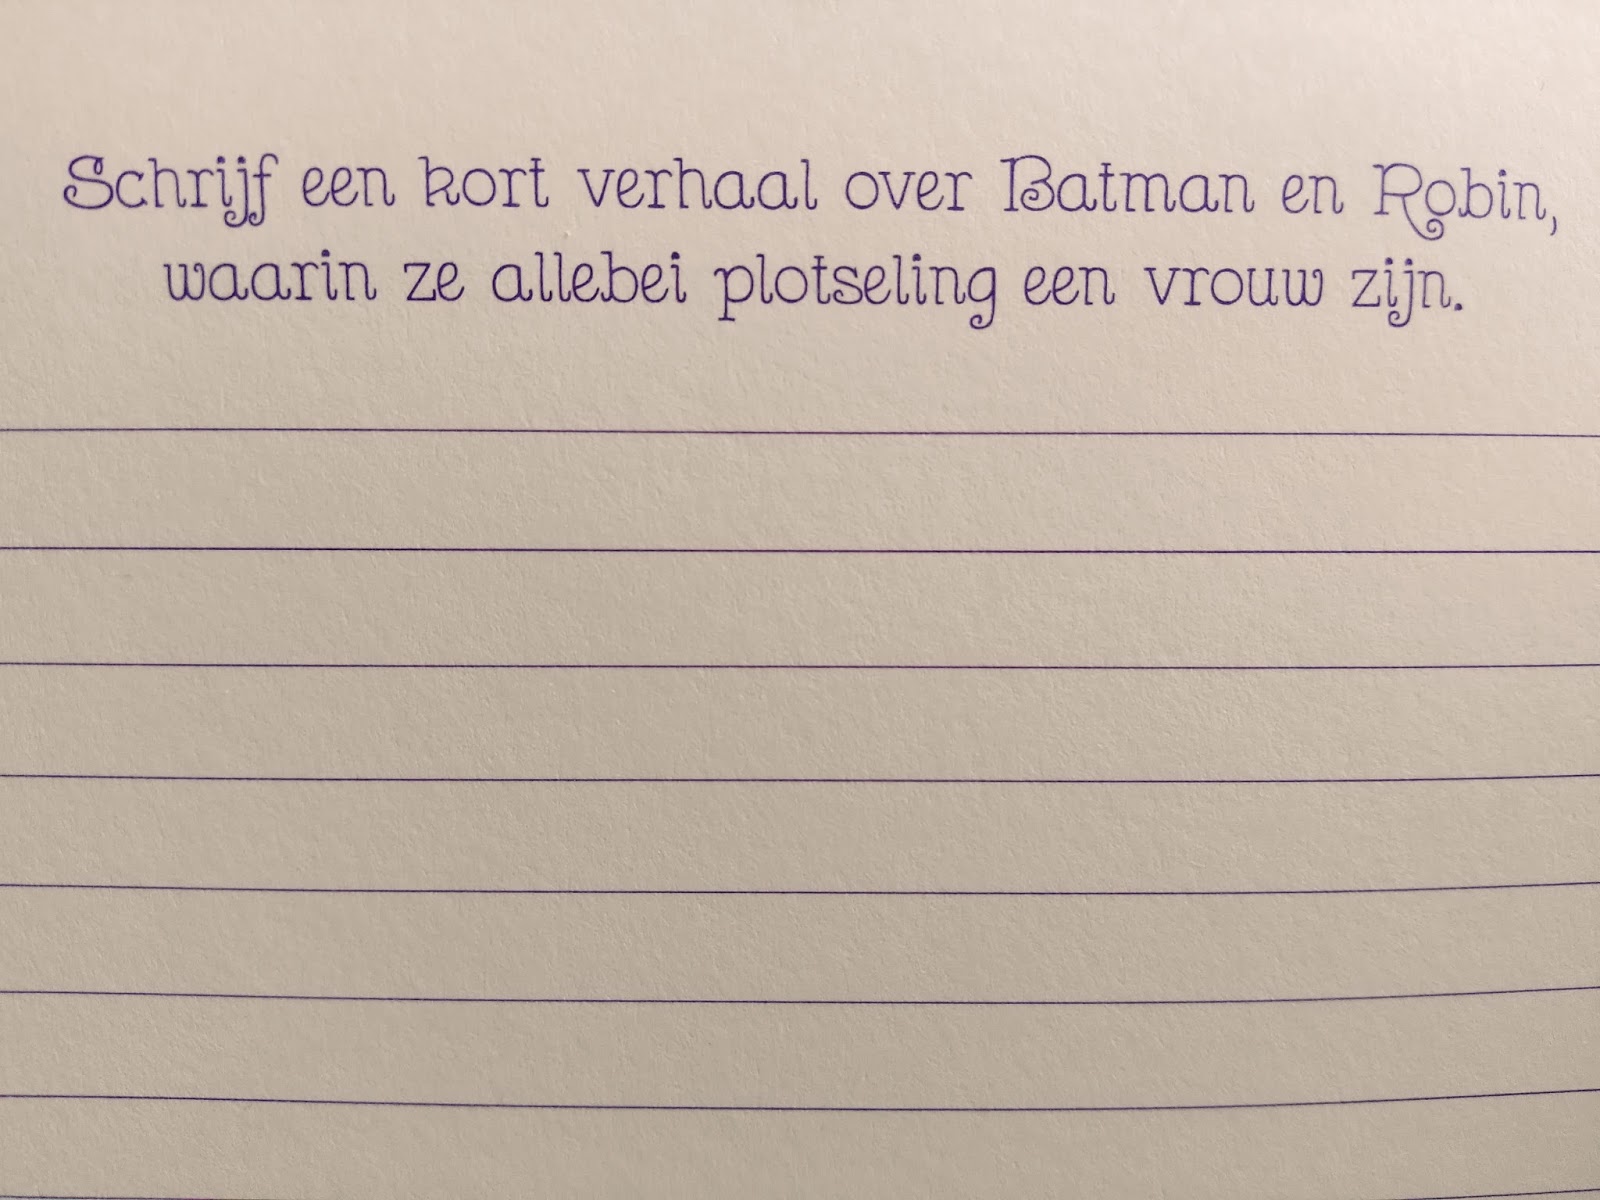 Schrijf een kort verhaal over Batman en Robin,
waarin ze allebei plotseling een vrouw zijn.